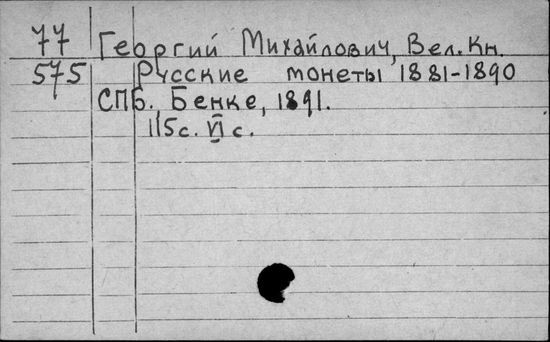 77 Георгий Михайлович, Вел. Кн.
575 Русские монеты 1881-1890
СПБ. Бенке, 1891.
115с. VI с.